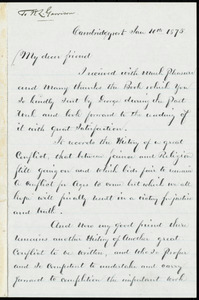 To W L Garrison
Cambridgeport Jan 10th 1875
My dear friend
I received with much pleasure
and many thanks the Book which you
so kindly sent by George during the past
week and look forward to the reading of
it with great Satisfaction.
It records the History of a great
Conflict, that between Science and Religion
still going on and which bids fair to remain
a Conflict for ages to come but which we all
hope will finally result in a victory for justice
and truth.
And Now my good friend there
remains another History of Another great
Conflict to be written, and who so proper
and so Competent to undertake and carry
forward to completion the important work